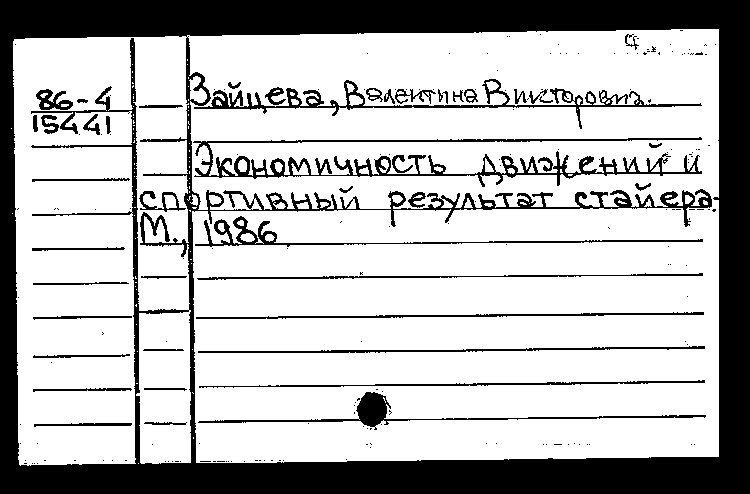 86-4
15441
Зайцева, Валентина Викторовна.
Экономичность движений и
спортивный результат стайера.
М., 1986